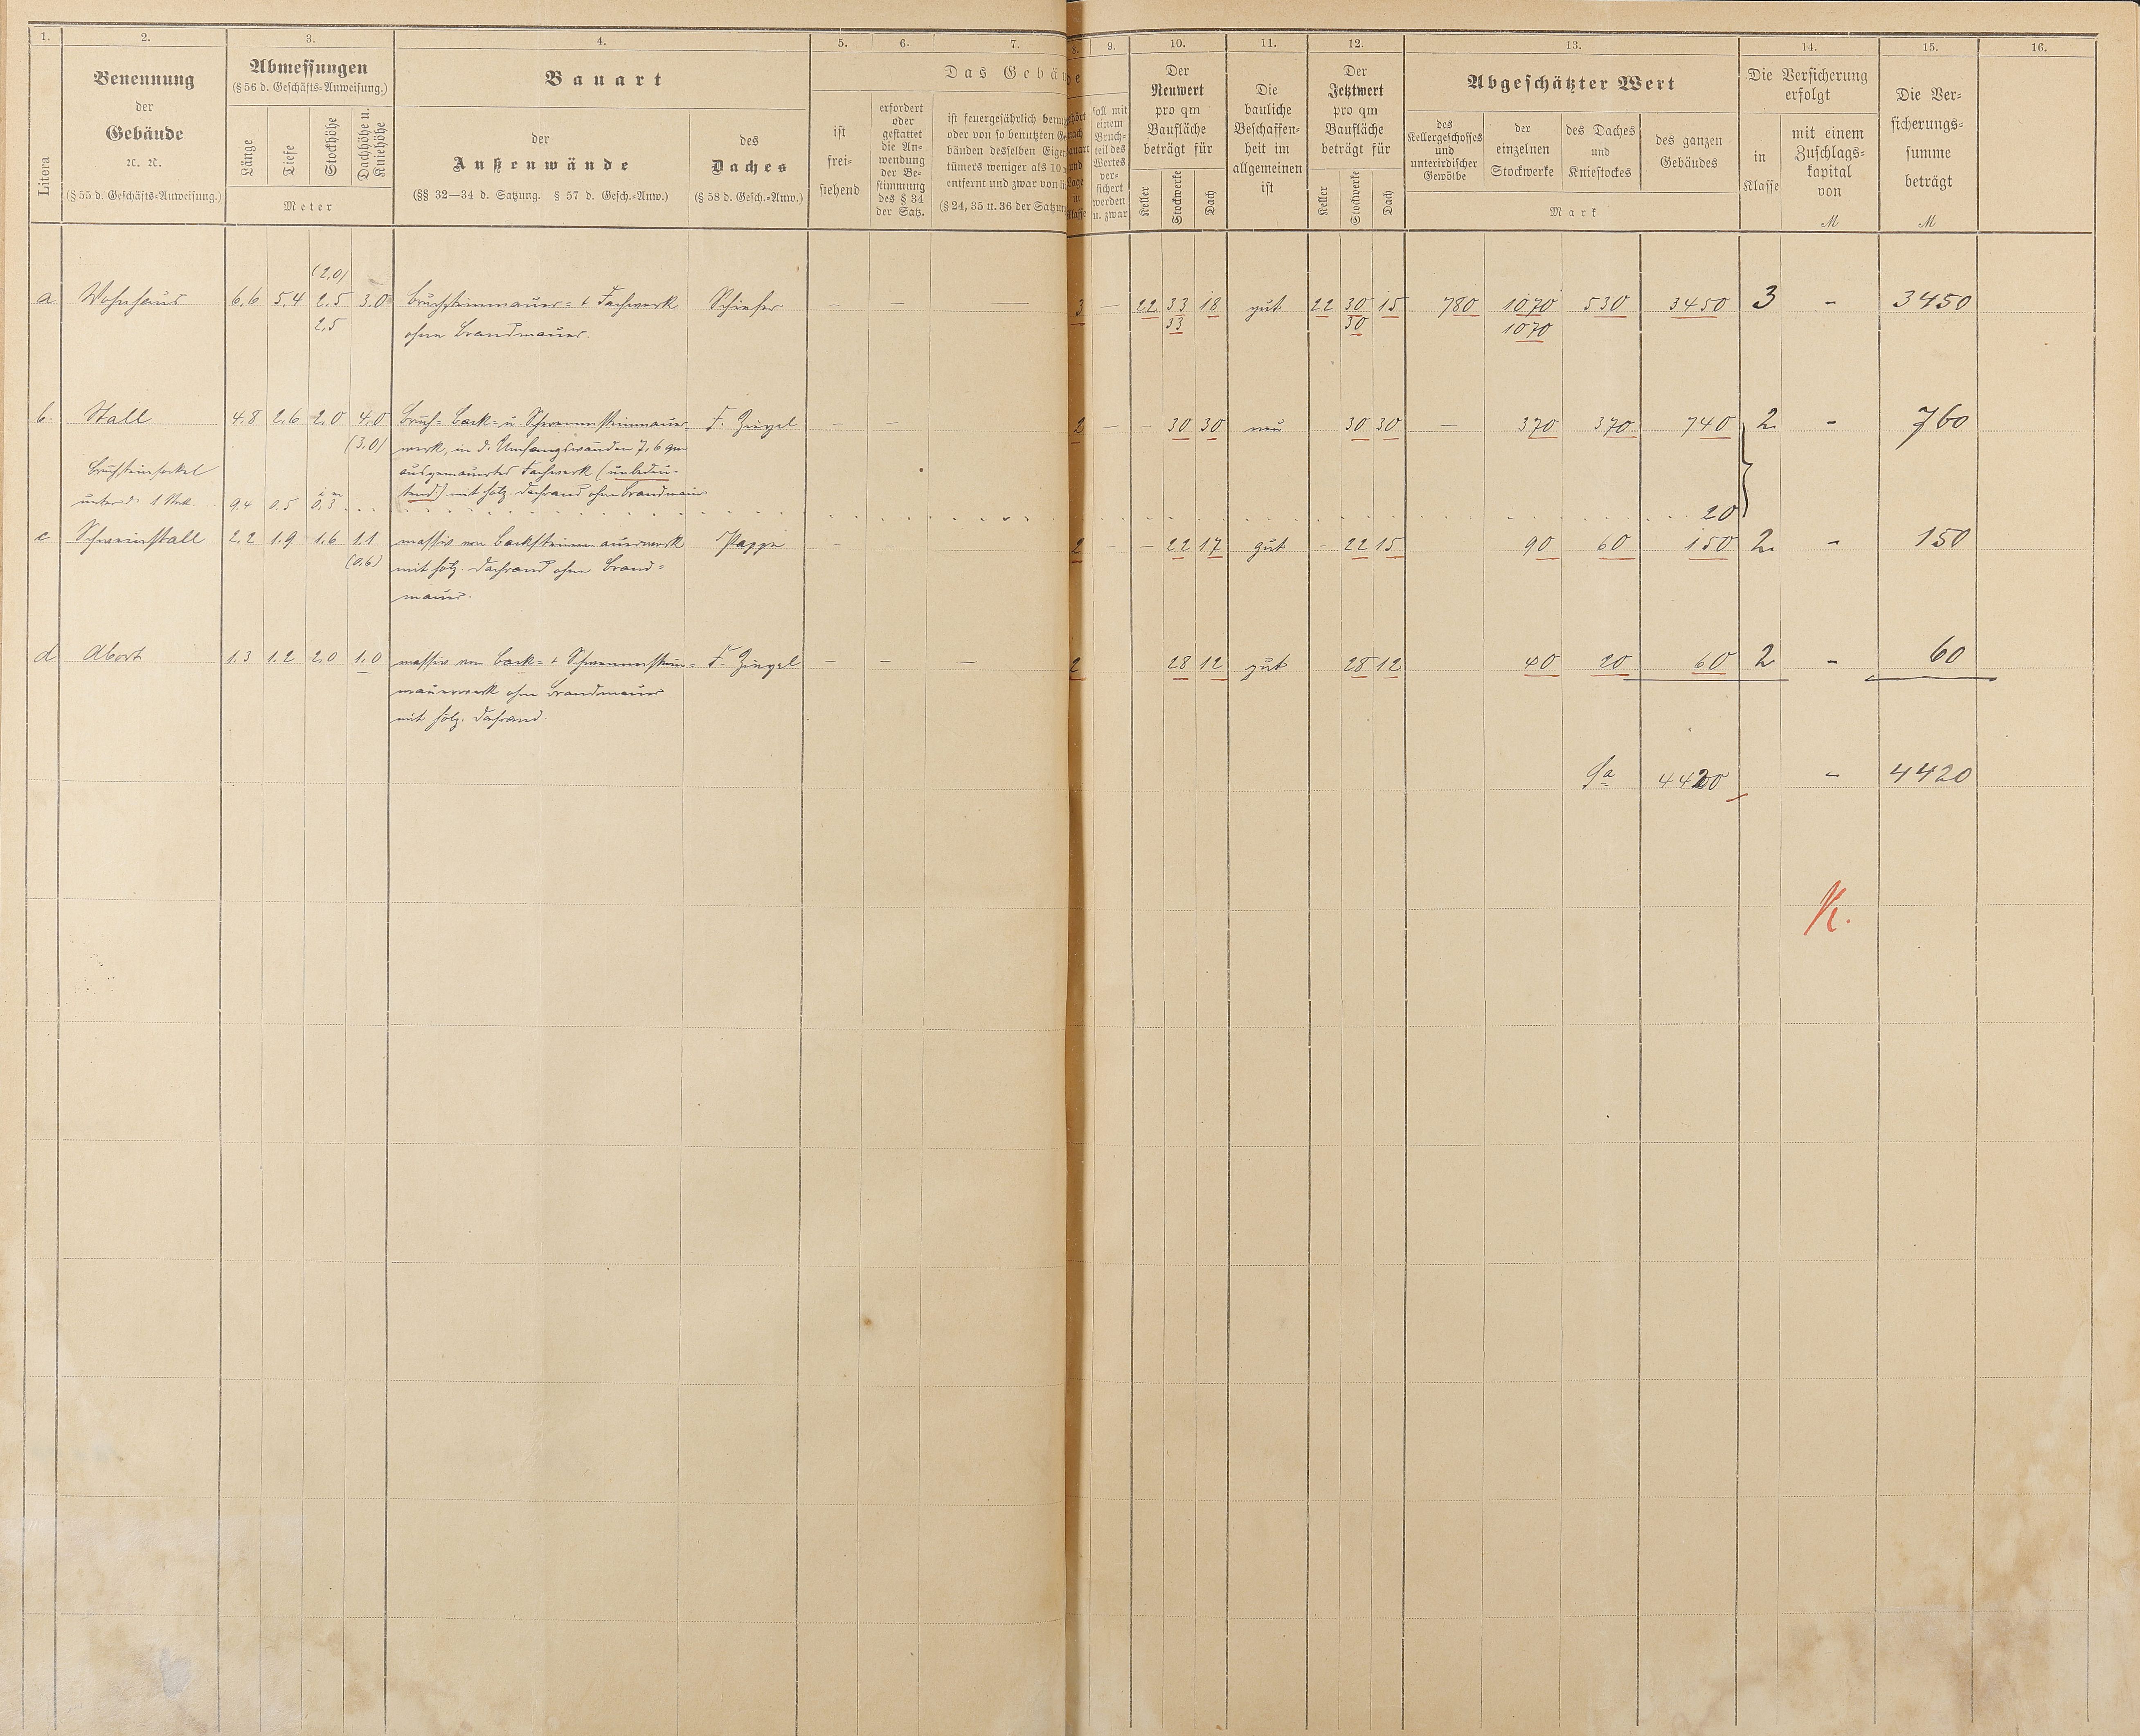 1. 2. 3. 4. 5. 6. 7. 8. 9. 10. 11. 12. 13. 14. 15. 16.
Litera
Benennung
der
Gebäude
ꝛc. ꝛc.
(§ 55 d. Geschäfts-Anweisung.)
Abmessungen
(§ 56 d. Geschäfts-Anweisung.)
Länge
Tiefe
Stockhöhe
Dachhöhe u.
Kniehöhe
Meter
Bauart
der
Außenwände
(§§ 32—34 d. Satzung. § 57 d. Gesch.-Anw.)
des
Daches
(§ 58 d. Gesch.-Anw.)
Das Gebäu de
ist
frei-
stehend
erfordert
oder
gestattet
die An-
wendung
der Be-
stimmung
des § 34
der Satz.
ist feuergefährlich benu
oder von so benutzten Ge
bänden desselben Eigen
tümers weniger als 10
entfernt und zwar von
(§ 24, 35 u. 36 der Satzung
gehört
nach
Bauart
und
Lage
in
Klasse
soll mit
einem
Bruch-
teil des
Wertes
ver-
sichert
werden
u. zwar
Der
Neuwert
pro qm
Baufläche
beträgt für
Keller
Stockwerke
Dach
Die
bauliche
Beschaffen-
heit im
allgemeinen
ist
Der
Jetztwert
pro qm
Baufläche
beträgt für
Keller
Stockwerke
Dach
Abgeschätzter Wert
des
Kellergeschosses
und
unterirdischer
Gewölbe
der
einzelnen
Stockwerke
des Daches
und
Kniestockes
des ganzen
Gebäudes
Mark
Die Versicherung
erfolgt
in
Klasse
mit einem
Zuschlags-
kapital
von
M
Die Ver-
sicherungs-
summe
beträgt
M
(2,0)
a Wohnhaus 6.6 5.4 2.5 3.0 Bruchsteinmauer- + Fachwerk Schiefer — — — 3 — 22 33 18 gut 22 30 15 780 1070 530 3450 3 - 3450
2,5 ohne Brandmauer. 33 30 1070
b. Stall 4.8 2.6 2.0 4.0 Bruch- Back- u Schwemmsteinmauer- F. Ziegel — — 2 — — 30 30 neu 30 30 — 370 370 740 2 - 760
(3.0) werk, in d. Umfangswänden 7,6 qm
Bruchsteinsockel ausgemauertes Fachwerk (unbedeu-
unter d. 1 Stock. 9.4 0.5 0,3 tend) mit holz. Dachrand ohne Brandmauer
20
c Schweinstall 2.2 1.9 1.6 1.1 massiv von Backsteinmauerwerk Pappe — — 2 — — 22 17 gut - 22 15 90 60 150 2 - 150
(0.6) mit holz. Dachrand ohne Brand-
mauer.
d Abort 1.3 1.2 2.0 1.0 massiv von Back- + Schwemmstein- F. Ziegel — — — 2 28 12 gut 28 12 40 20 60 2 - 60
mauerwerk ohne Brandmauer
mit holz. Dachrand.
Sa 4420 - 4420
K.